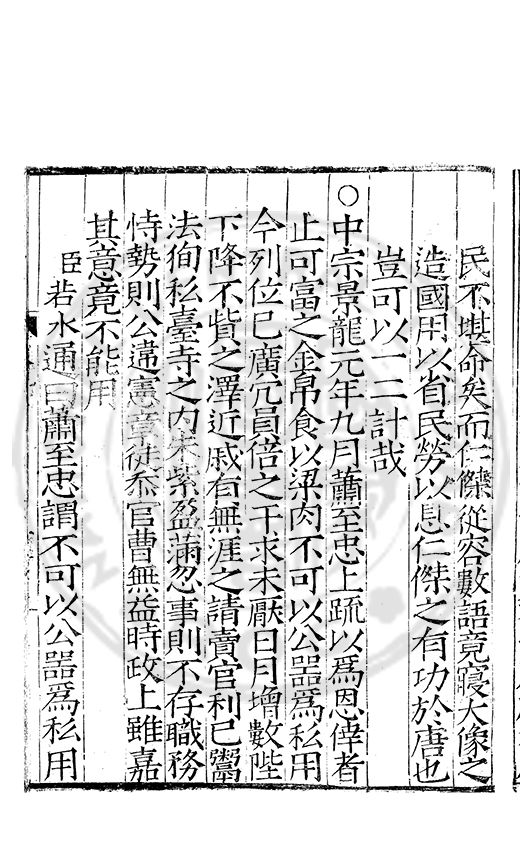 民不堪命矣而仁傑從容數語竟寢大像之
造國用以省民勞以息仁傑之有功於唐也
豈可以一二計哉
○中宗景龍元年九月蕭至忠上疏以爲恩倖者
止可富之金帛食以梁肉不可以公噐爲私用
今列位已廣冗員倍之干求未厭日月增數陛
下降不貲之澤近戚有無涯之請賣官利己鬻
法徇私臺寺之内朱紫盈滿忽事則不存職務
恃勢則公違憲章徒忝官曹無益時政上雖嘉
其意竟不能用
臣若水通曰蕭至忠謂不可以公噐爲私用